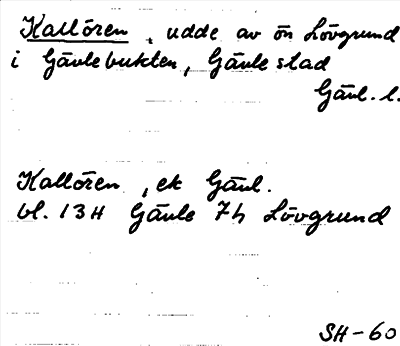 Kallören, udde av ön Lövgrund
i Gävlebukten, Gävle stad
Gävl. l.
Kallören, ek Gävl.
bl. 13H Gävle 7h Lövgrund
SH-60